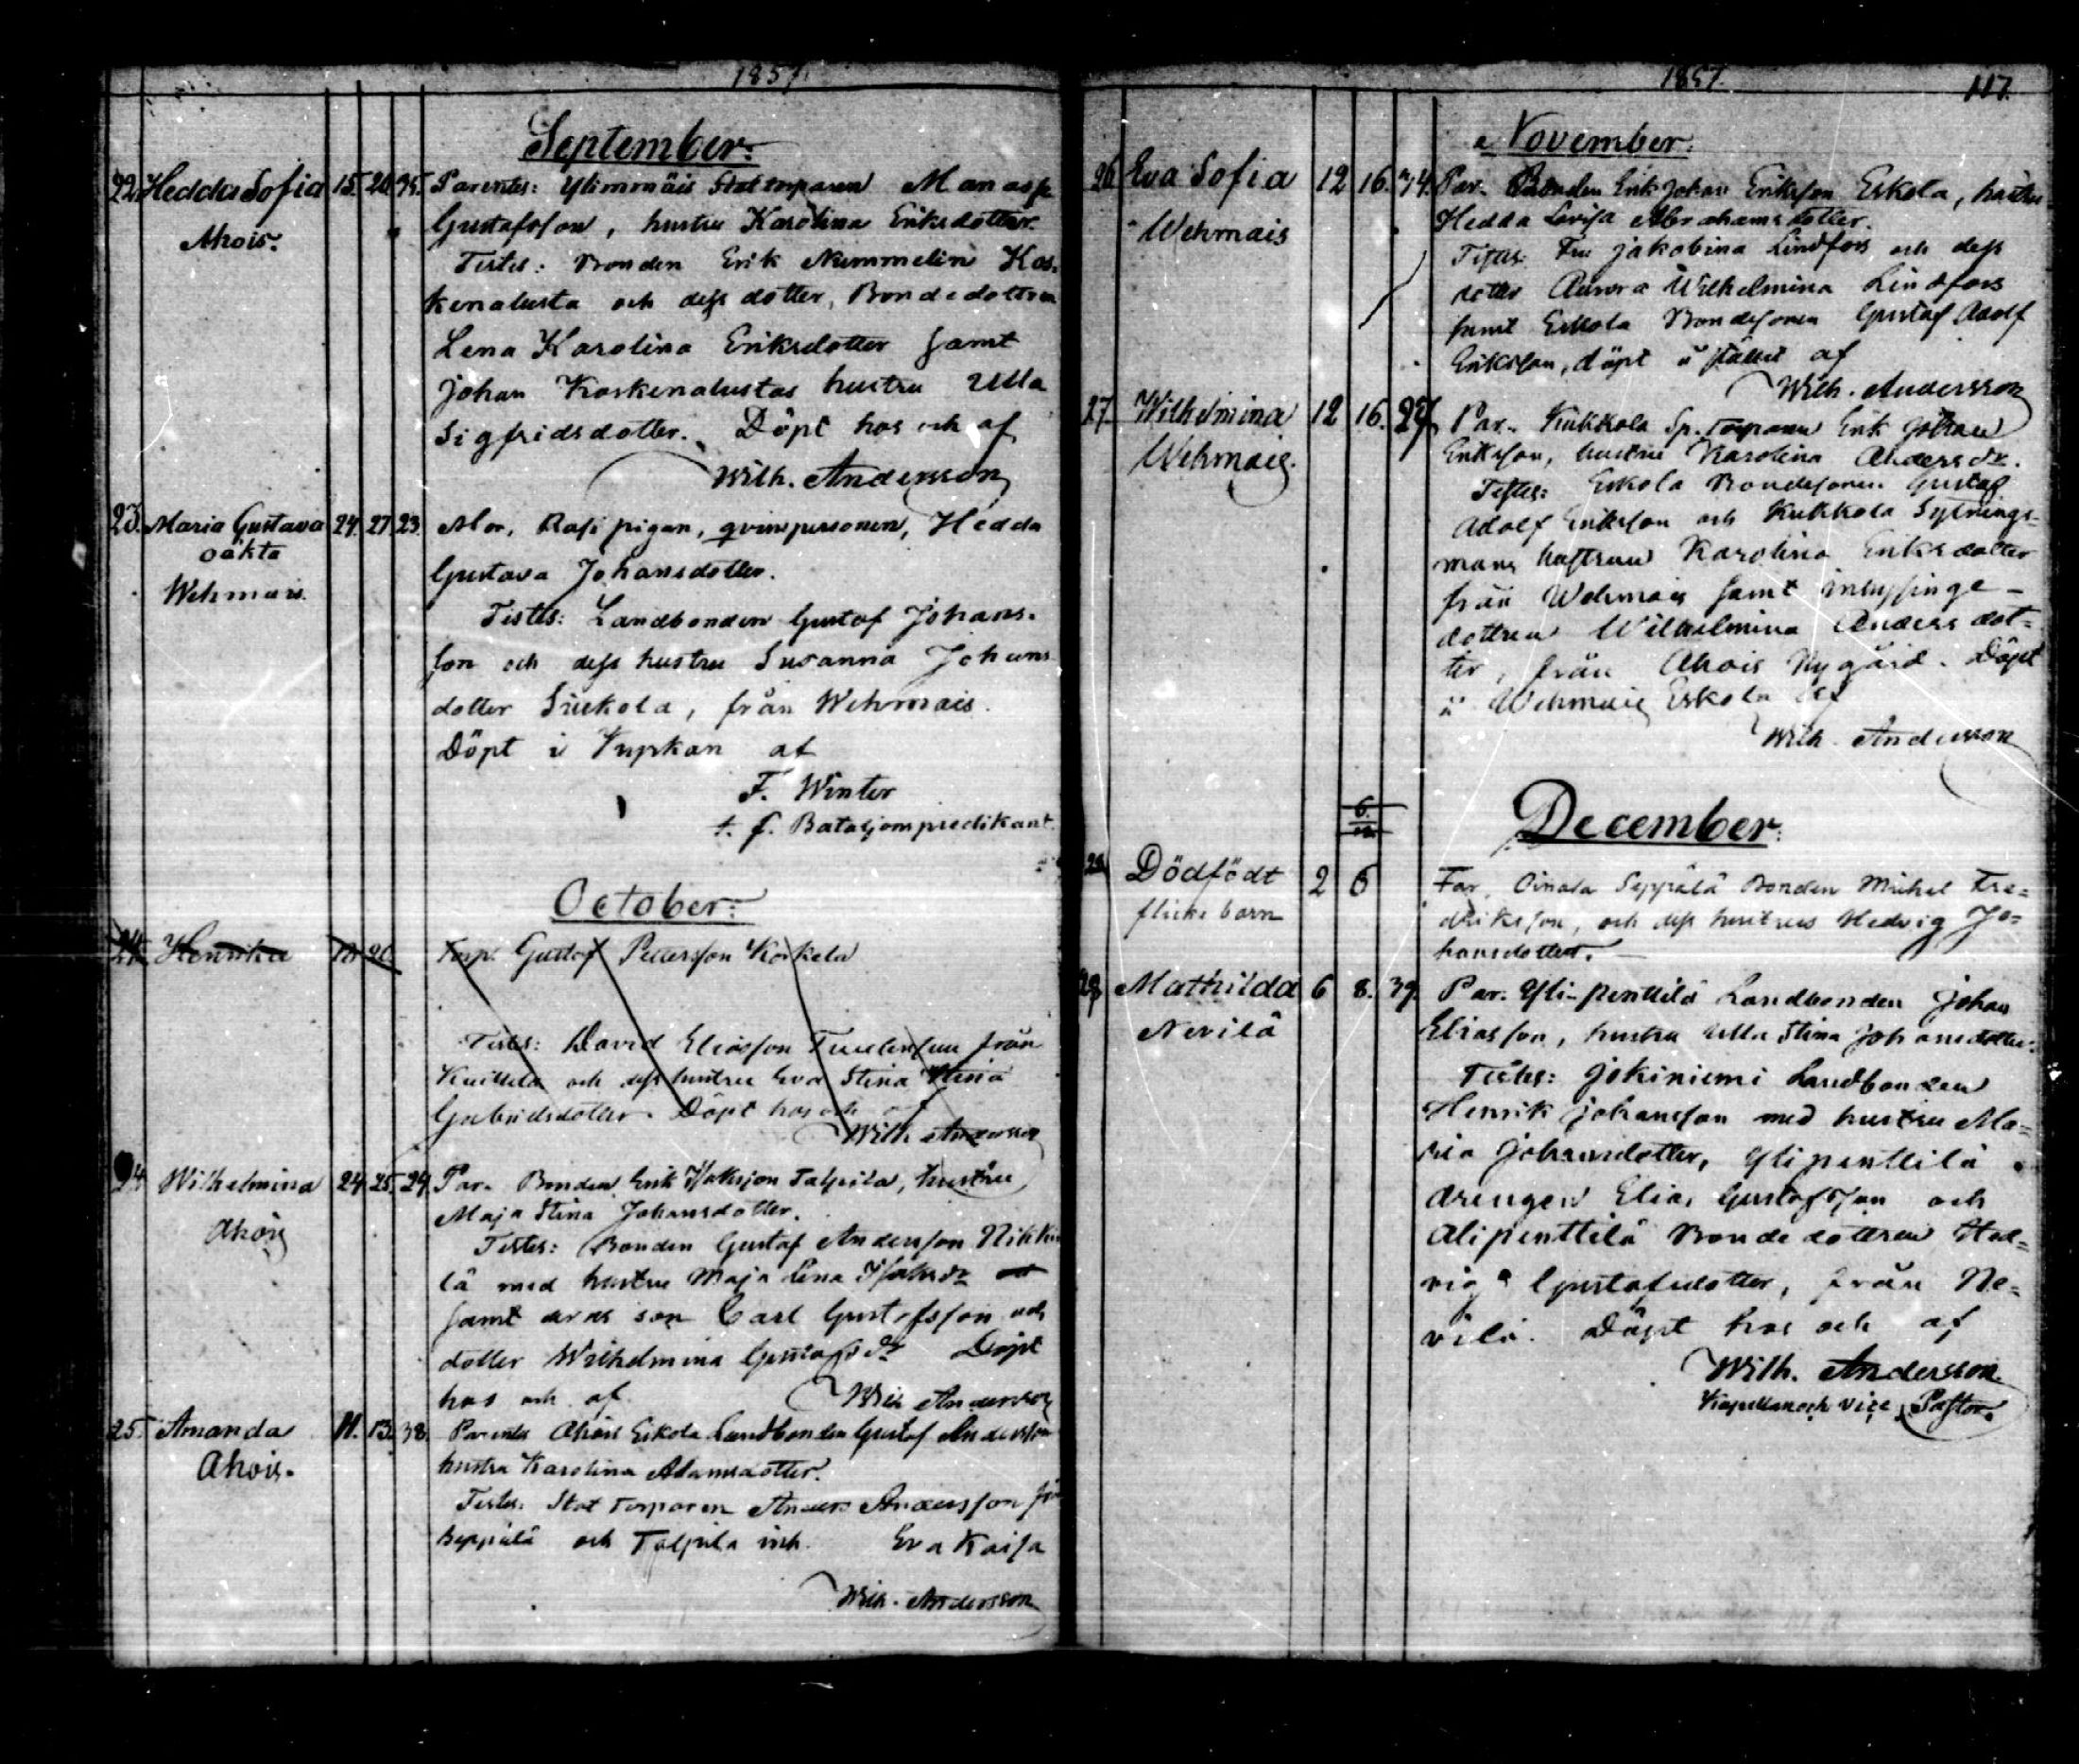 1857.
September:
22. Hedda Sofia 15. 20. 35. Parentes: Ylimmäis Stattorparen Manasse
Ahois. Gustafsson, hustru Karolina Eriksdotter.
Testes: Bonden Erik Nummelin Kos-
kenalusta och dess dotter, Bondedottren
Lena Karolina Eriksdotter samt
Johan Koskenalustas hustru Ulla
Sigfridsdotter. Döpt hos och af
Wilh. Andersson
23. Maria Gustava 24. 27. 23. Mor, Rasi pigan, qvinspersonen, Hedda
oäkta Gustava Johansdotter.
Wehmais. Testes: Landbonden Gustaf Johans-
son och dess hustru Susanna Johans
dotter, från Wehmais.
Döpt i af
F. Winter
t. f. Bataljonspredikant
October:
24. Henrika 20. Torp. Gustaf Pettersson Korkela
Testes: David Eliasson från
och dess hustru Eva Stina Stina
Gabrielsdotter. Döpt hos och af
Wilh. Andersson
24. Wilhelmina 24. 25. 24. Par. Bonden Erik Isaksson Talpila, hustru
Ahois Maja Stina Johansdotter.
Testes: Bonden Gustaf Andersson Nikki
lä med hustru Maja Lena Isaksdr
samt deras son Carl Gustafsson och
dotter Wilhelmina Gustafsdr Döpt
hos och af Wilh Andersson
25. Amanda 11. 13. 38. Parentes Ahois Eskola Landbonden Gustaf Andersson
Ahois. hustru Karolina Adamsdotter.
Testes: Stat Torparen Anders Andersson
Seppälä och Talpila inh. Eva Kaisa
Wilh. Andersson
1857. 117.
November.
26 Eva Sofia 12 16. 34. Par. Bonden Erik Johan Eriksson Eskola, hustru
Wehmais Hedda Lovisa Abrahamsdotter.
Testes: Fru Jakobina Lindfors och dess
dotter Aurora Wilhelmina Lindfors
samt Eskola Bondesonen Gustaf Adolf
Eriksson, döpt å stället af
Wilh. Andersson
27. Wilhelmina 12 16. 27. Par. Kukkola Sp. Torparen Erik Johan
Wehmais. Eriksson, hustru Karolina Andersdr.
Testes: Eskola Bondesonen Gustaf
Adolf Eriksson och Kukkola Sytnings-
mans hustrun Karolina Eriksdotter
från Wehmais samt inhyssinge-
dottren Wilhelmina Andersdot-
ter, från Ahois Nygård. Döpt
i Wehmais Eskola af
Wilh. Andersson
6.
December:
28 Dödfödt 2 6 Far, Oinala Seppälä Bonden Mickel Fre-
flicke barn driksson, och dess hustrus Hedvig Jo-
hansdotter.
29 Mathilda 6 8. 39. Par. Yli-penttilä Landbonden Johan
Nevilä Eliasson, hustru Ulla Stina Johansdotter.
Testes: Jokiniemi Landbonden
Henrik Johansson med hustru Ma-
ria Johansdotter, Ylipenttilä
drengen Elias Gustafsson och
Alipenttilä Bondedottren Hed-
vig Gustafsdotter, från Ne-
vilä. Döpt hos och af
Wilh. Andersson.
Kapellan och vice Pastor.